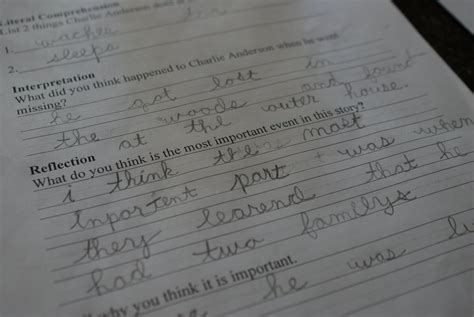 Literal Comprehension
List 2 things Charlie Anderson does
1.
2. sleeps
Interpretation
What did you think happened to Charlie Anderson when he went
missing?
he got lost in
the woods and found
the at the outer house.
Reflection
What do you think is the most important event in this story?
i think the most
inportent part was when
they learend that he
had two familys
why you think it is important.
he was